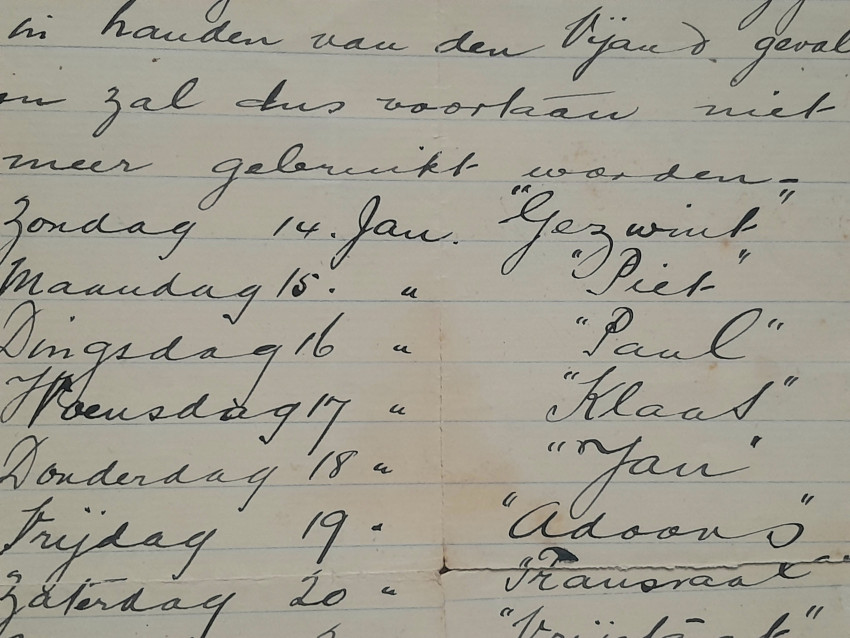 in handen van den Vijand geval
en zal dus voortaan niet
meer gebruikt worden -
Zondag 14. Jan. "Gezwint"
Maandag 15. " "Piet"
Dingsdag 16 " "Paul"
Woensdag 17 " "Klaas"
Donderdag 18 " "Jan"
Vrijdag 19 " "Adoons"
Zaterdag 20 " "Transvaal"
"Vrijstaat"